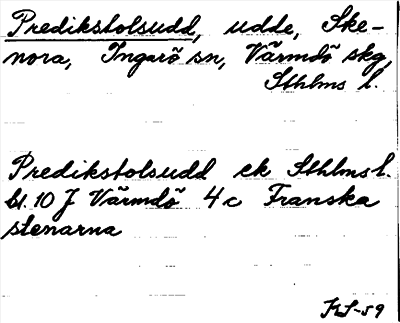 Predikstolsudd, udde, Ske-
nora, Ingarö sn, Värmdö skg,
Sthlms l.
Predikstolsudd ek Sthlms l.
bl. 10 J Värmdö 4c Franska
stenarna
KS-59